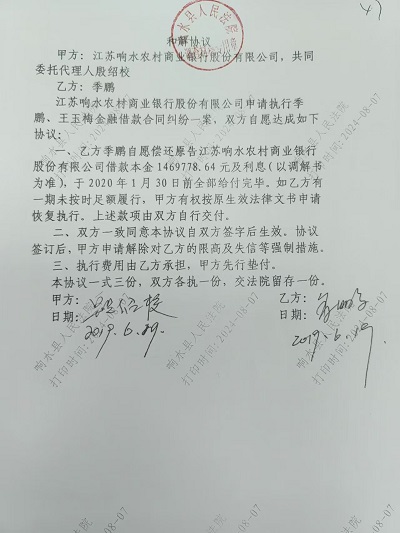 47
响水县人民法院
和解协议
甲方：江苏响水农村商业银行股份有限公司，共同
委托代理人殷绍校
乙方：季鹏
江苏响水农村商业银行股份有限公司申请执行季
鹏、王玉梅金融借款合同纠纷一案，双方自愿达成如下
协议：
一、乙方季鹏自愿偿还原告江苏响水农村商业银行
股份有限公司借款本金1469778.64元及利息（以调解书
为准），于2020年1月30日前全部给付完毕。如乙方有
一期未按时足额履行，甲方有权按原生效法律文书申请
恢复执行。上述款项由双方自行交付。
二、双方一致同意本协议自双方签字后生效。协议
签订后，甲方申请解除对乙方的限高及失信等强制措施。
三、执行费用由乙方承担，甲方先行垫付。
本协议一式三份，双方各执一份，交法院留存一份。
甲方：
乙方：
日期：
日期：
2019.6.29
2019.6.29
响水县人民法院
打印时间：2024-08-07